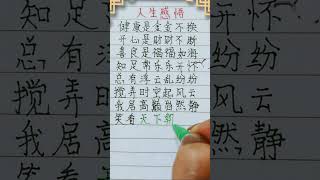 人生感悟
健康是金金不换
开心是财财不断
善良是福福如海
知足常乐乐开怀
总有浮云乱纷纷
搅弄时空起风云
我居高巅当然静
笑看天下